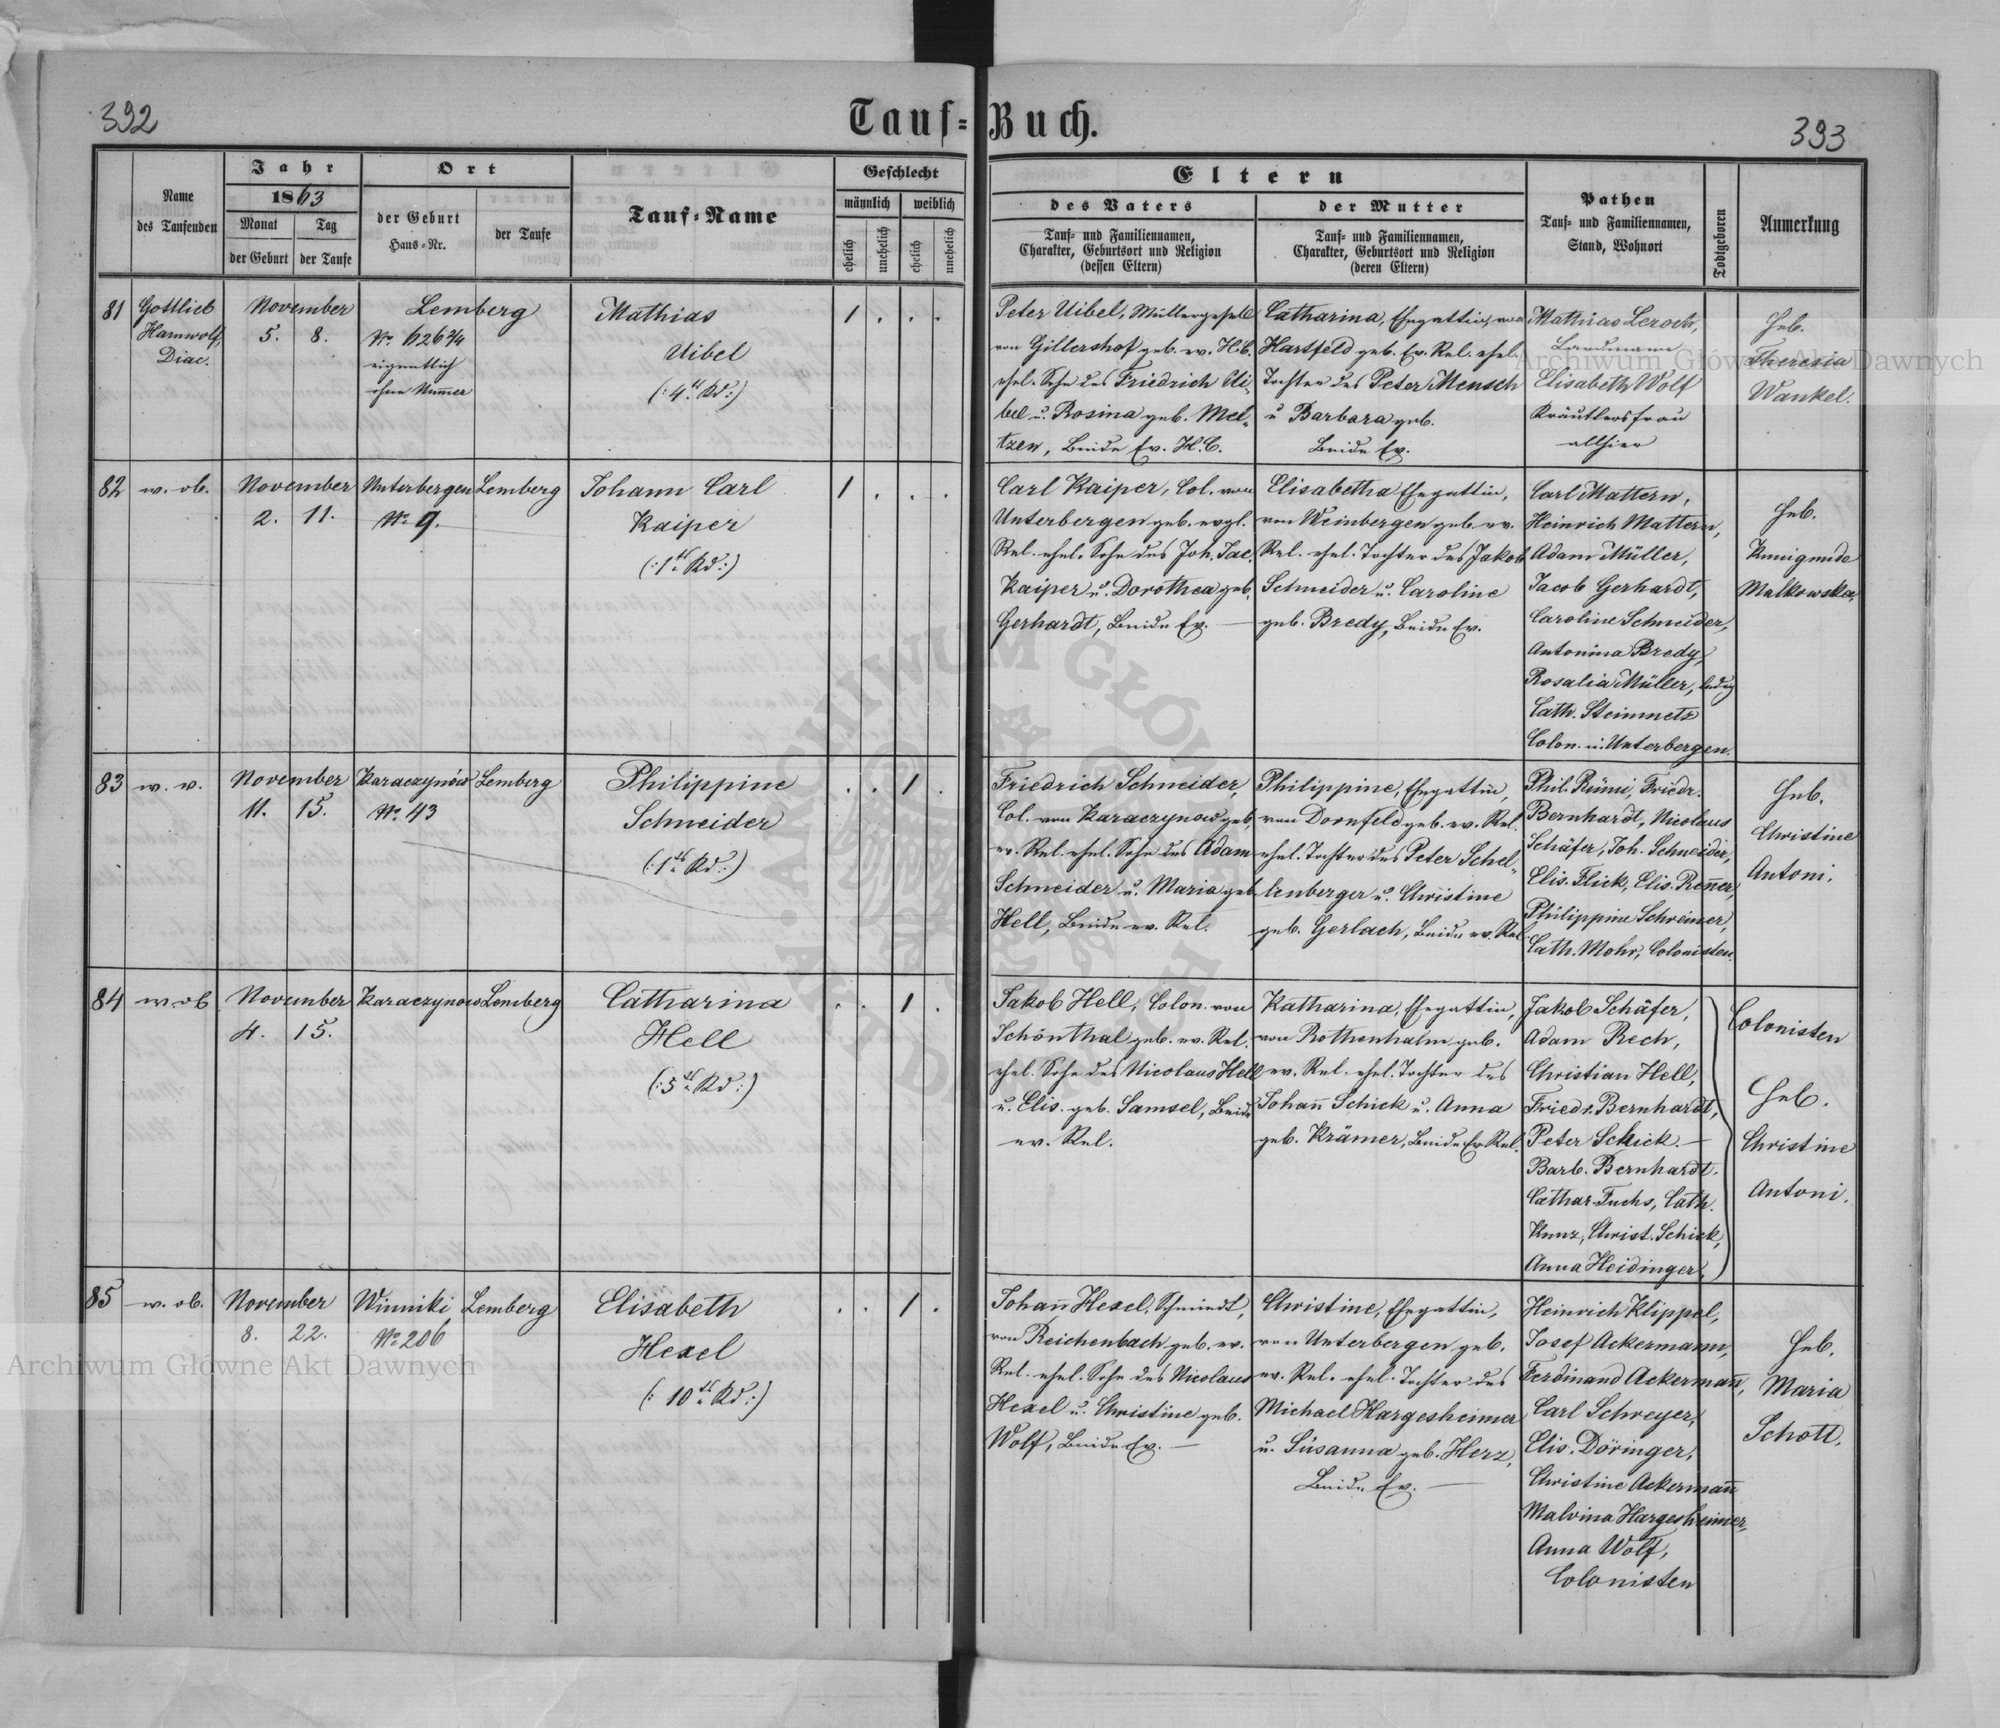 392
Tauf-Buch.
393
Name
des Taufenden
Jahr
1863
Monat
Tag
der Geburt
der Taufe
Ort
der Geburt
Haus-Nr.
der Taufe
Tauf-Name
Geschlecht
männlich
weiblich
ehelich
unehelich
ehelich
unehelich
Eltern
des Vaters
Tauf- und Familiennamen,
Charakter, Geburtsort und Religion
(dessen Eltern)
der Mutter
Tauf- und Familiennamen,
Charakter, Geburtsort und Religion
(deren Eltern)
Pathen
Tauf- und Familiennamen,
Stand, Wohnort
Todtgeboren
Anmerkung
81
Gottlieb
Hamwolf,
Diac.
November
5. 8.
Lemberg
No. 626 2/4
eigentlich
ohne Numer
Mathias
Uibel
(: 4te Kd :)
1 . . .
Peter Uibel, Müllergeselle
von Gillershof geb. ev. H.C.
ehel. Sohn des Friedrich Ui-
bel u. Rosina geb. Mel-
tzen, Beide Ev. H.C.
Catharina, Ehegattin, von
Hartfeld geb. Ev. Rel. ehel.
Tochter des Peter Mensch
u Barbara geb.
Beide Ev.
Mathias Leroch,
Elisabeth Wolf
Kräutlersfrau
allhier
Heb.
Theresia
Wankel.
82
w. ob.
November
2. 11.
Unterbergen
No. 9.
Lemberg
Johann Carl
Kaiper
(: 1te Kd :)
1 . . .
Carl Kaiper, Col. von
Unterbergen geb. evgl.
Rel. ehel. Sohn des Joh. Jac.
Kaiper u. Dorothea geb.
Gerhardt, Beide Ev.
Elisabetha Ehegattin,
von Weinbergen geb. ev.
Rel. ehel. Tochter des Jakob
Schneider u. Caroline
geb. Bredy, Beide Ev.
Carl Mattern,
Heinrich Mattern,
Adam Müller,
Jacob Gerhardt,
Caroline Schneider,
Antonina Bredy,
Rosalia Müller, ledig
Cath. Steinmetz
Colon. in Unterbergen.
Heb.
Kunigunde
Malkowska,
83
w. v.
November
11. 15.
Karaczynów
No. 43
Lemberg
Philippine
Schneider
(: 1te Kd :)
. . 1 .
Friedrich Schneider,
Col. von Karaczynow geb,
ev. Rel. ehel. Sohn des Adam
Schneider u. Maria geb
Hell, Beide ev. Rel.
Philippine, Ehegattin,
von Dornfeld geb. ev. Rel.
ehel. Tochter des Peter Schel-
lenberger u. Christine
geb. Gerlach, Beide ev. Rel.
Friedr.
Bernhardt, Nicolaus
Schäfer, Joh. Schneider,
Elis. Flick, Elis. Reñer,
Philippine Schreiner,
Cath. Mohr, Colonisten.
Heb.
Christine
Antoni.
84
w ob
November
4. 15.
Karaczynow
Lemberg
Catharina
Hell
(: 5te Kd :)
. . 1 .
Jakob Hell, Colon. von
Schönthal geb. ev. Rel.
ehel. Sohn des Nicolaus Hell
u. Elis. geb. Samsel, Beide
ev. Rel.
Katharina, Ehegattin,
von Rottenhahn geb.
ev. Rel. ehel. Tochter des
Johañ Schick u. Anna
geb. Krämer, Beide Ev. Rel.
Jakob Schäfer,
Adam Rech,
Christian Hell,
Friedr. Bernhardt,
Peter Schick.
Barb. Bernhardt.
Cathar. Fuchs, Cath.
Kunz, Christ. Schick,
Anna Heidinger,
Colonisten
Heb.
Christine
Antoni.
85
w. ob.
November
8. 22.
Winniki
No. 206
Lemberg
Elisabeth
Hexel
(: 10te Kd :)
. . 1 .
Johañ Hexel, Schmiedt,
von Reichenbach geb. ev.
Rel. ehel. Sohn des Nicolaus
Hexel u. Christine geb.
Wolf, Beide Ev.
Christine, Ehegattin,
von Unterbergen geb.
ev. Rel. ehel. Tochter des
Michael Hargesheimer
u. Susanna geb. Herz,
Beide Ev.
Heinrich Klippel,
Josef Ackermann,
Ferdinand Ackermañ,
Carl Schreyer,
Elis. Döringer,
Christine Ackermañ
Malvina Hargesheimer,
Anna Wolf,
Colonisten
Heb.
Maria
Schott.
Archiwum Główne Akt Dawnych
Archiwum Główne Akt Dawnych